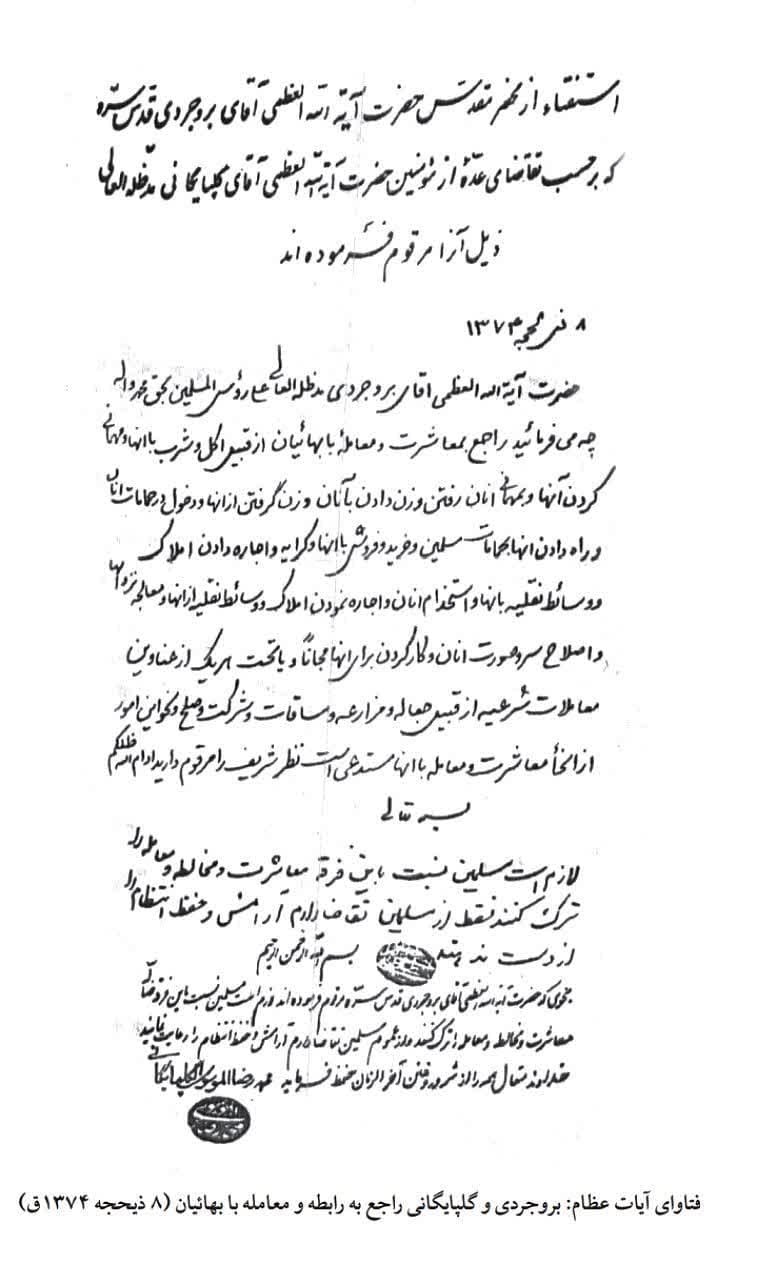 استفتاء از محضر مقدس حضرت آیة الله العظمی آقای بروجردی قدس سره
که برحسب تقاضای عدهٔ از مؤمنین حضرت آیة الله العظمی آقای گلپایگانی مد ظله العالی
ذیل آنرا مرقوم فرموده اند
۸ ذی الحجه ۱۳۷۴
حضرت آیة الله العظمی آقای بروجردی مد ظله العالی علی رؤس المسلمین بحق محمد و اله
چه می فرمائید راجع بمعاشرت و معاملهٔ با بهائیان از قبیل اکل و شرب با انها و مهمانی
کردن آنها و بمهمانی انان رفتن و زن دادن بآنان و زن گرفتن از انها و دخول در حمامات انان
و راه دادن انها بحمامات مسلمین و خرید و فروش با انها و کرایه و اجاره دادن املاک
و وسائط نقلیه بانها و استخدام انان و اجاره نمودن املاک و وسائط نقلیه از انها و معالجه نزد انها
و اصلاح سر و صورت انان و کار کردن برای انها مجاناً و یا تحت هر یک از عناوین
معاملات شرعیه از قبیل جعاله و مزارعه و مساقات و شرکت و صلح و نحو این امور
از انحأ معاشرت و معامله با انها مستدعی است نظر شریف را مرقوم دارید ادام الله ظلکم
بسمه تعالی
لازم است مسلمین نسبت باین فرقه معاشرت و مخالطه و معامله را
ترک کنند فقط از مسلمین تقاضا دارم آرامش و حفظ انتظام را
از دست ندهند
بسم الله الرحمن الرحیم
بنحوی که حضرت آیة الله العظمی آقای بروجردی قدس سره مرقوم فرموده اند لازم است مسلمین نسبت باین فرقه ضاله
معاشرت و مخالطه و معامله را ترک کنند و از عموم مسلمین تقاضا دارم آرامش و حفظ انتظام را رعایت نمایند
خداوند متعال همه را از شرور و فتن آخر الزمان حفظ فرماید محمد رضا الموسوی الگلپایگانی
فتاوای آیات عظام: بروجردی و گلپایگانی راجع به رابطه و معامله با بهائیان (۸ ذیحجه ۱۳۷۴ق)